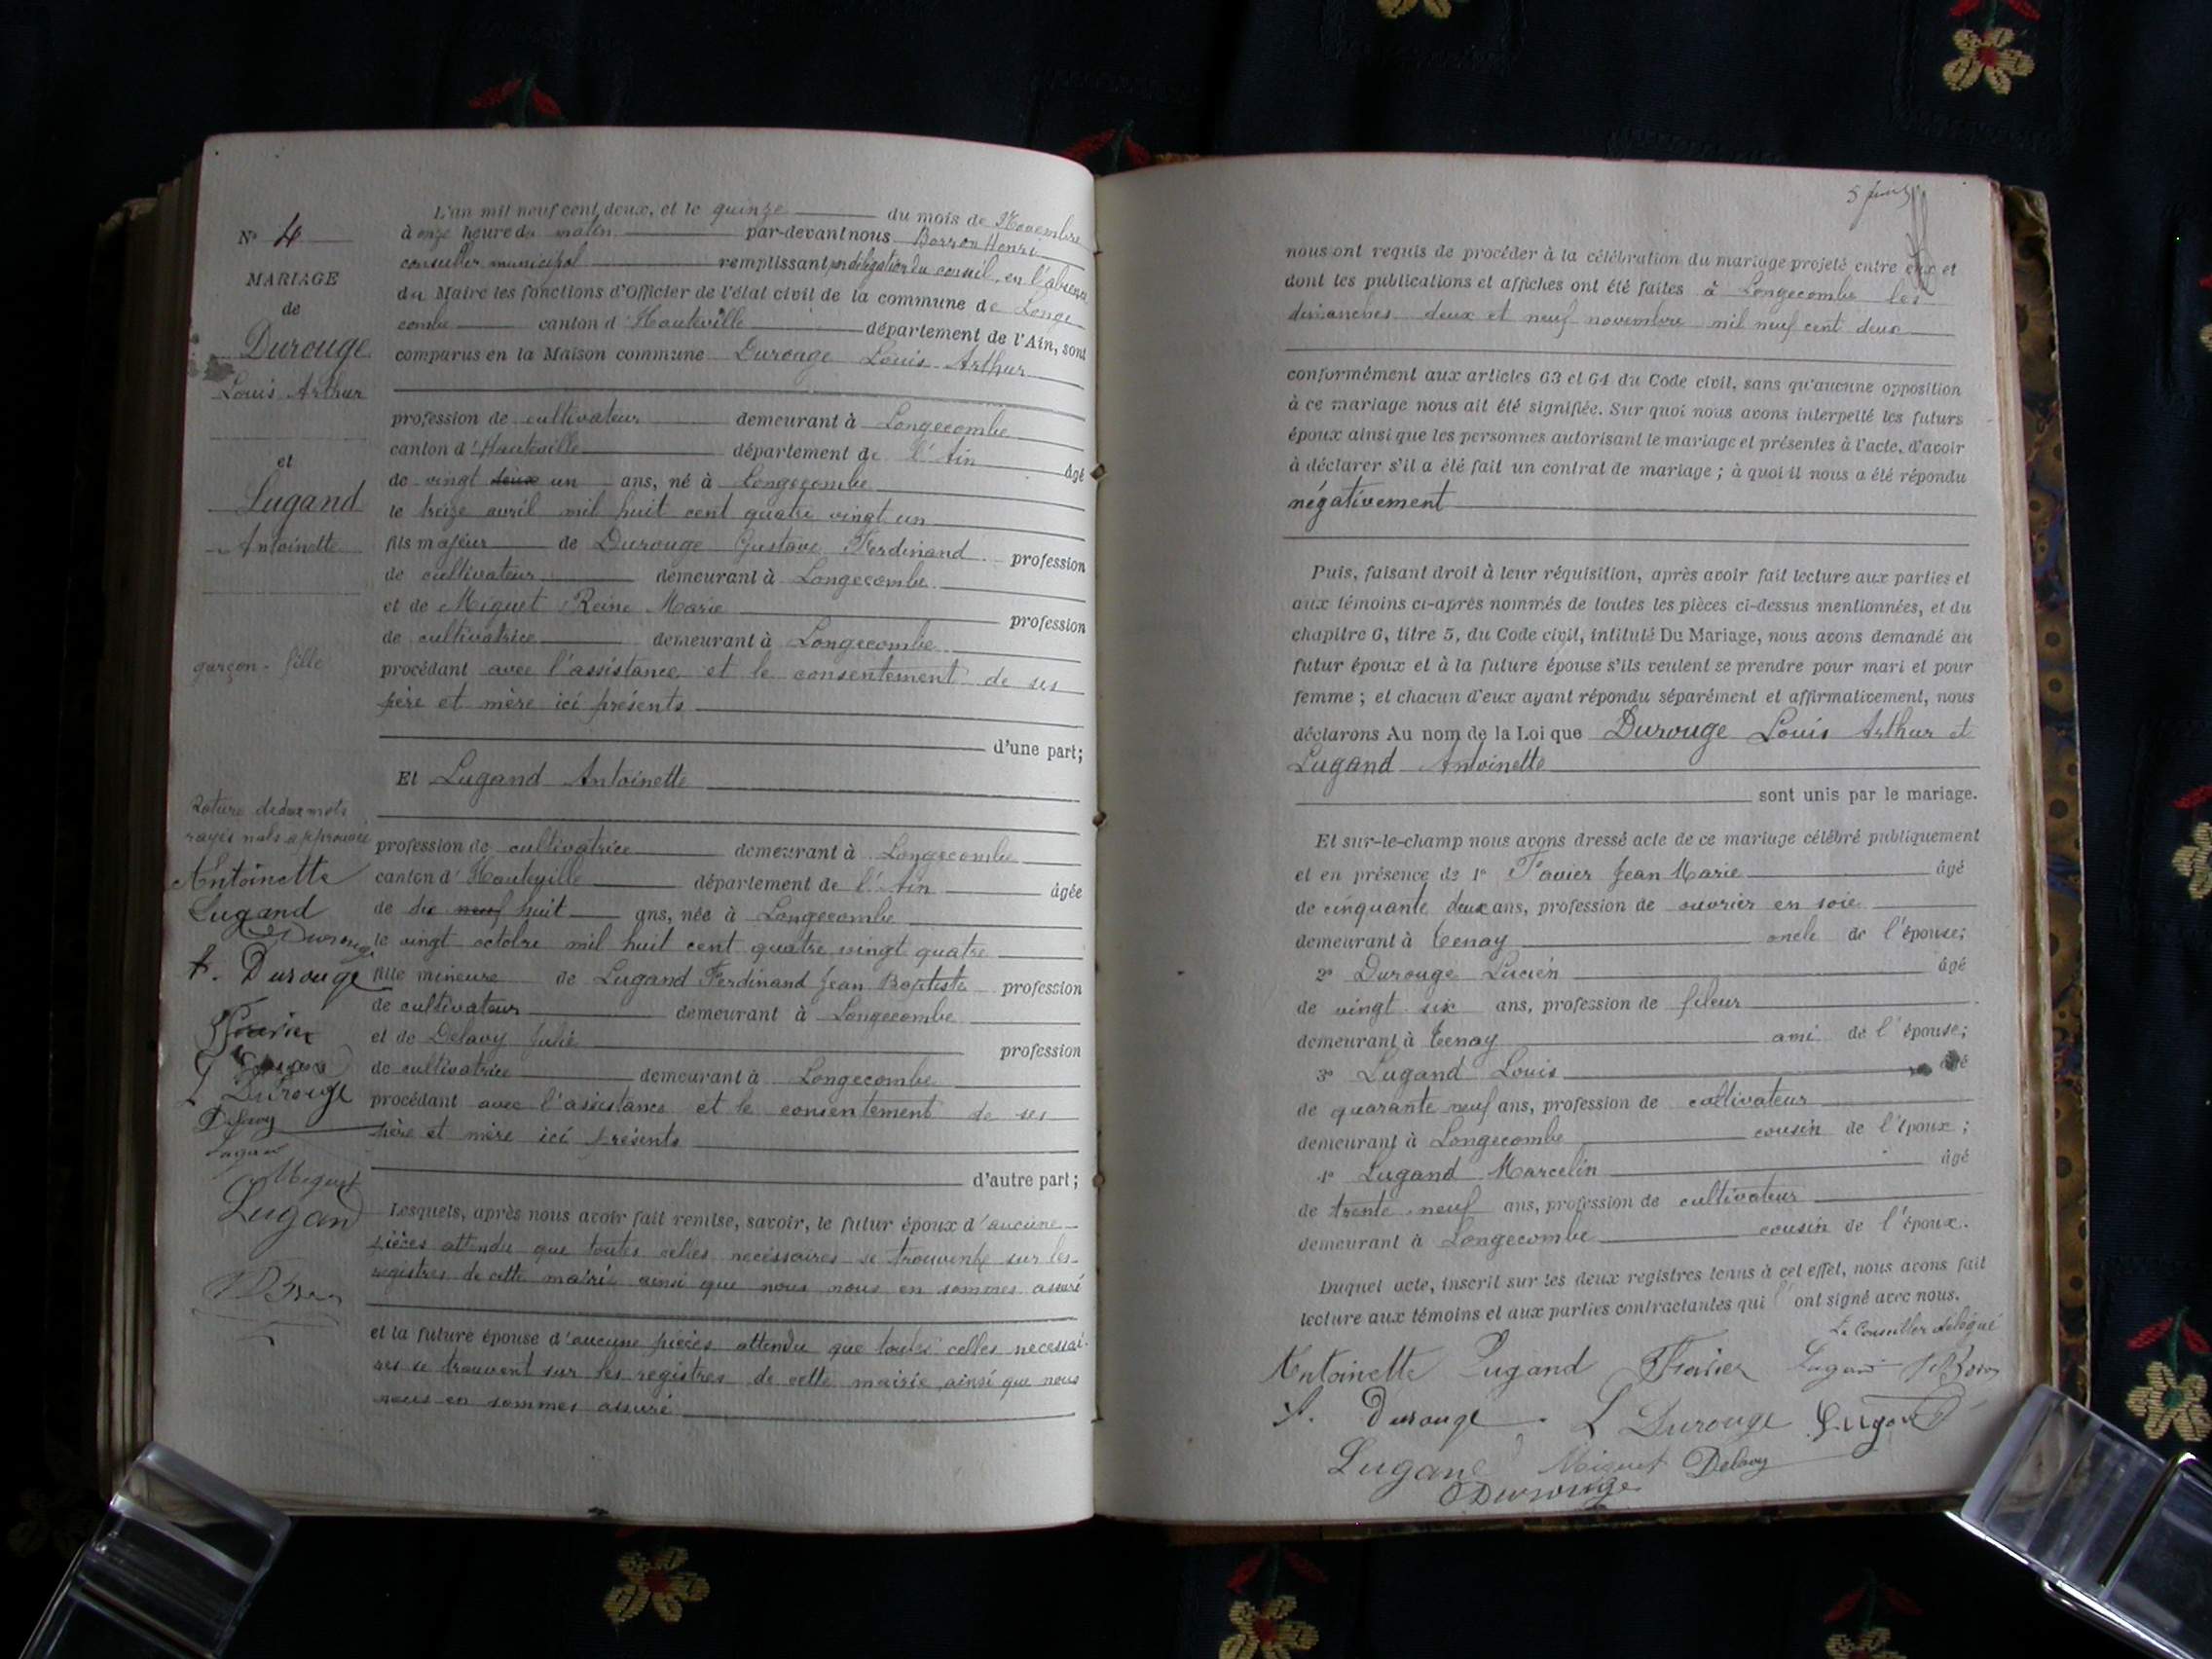 N° 4
MARIAGE
de
Durouge
Louis Arthur
et
Lugand
Antoinette
garçon - fille
Rature de deux mots
rayés nuls approuvée
Antoinette
Lugand
Durouge
A. Durouge
Favier
L Durouge
Delavy
Lugand
Miguet
Lugand
L'an mil neuf cent deux, et le quinze du mois de Novembre
à onze heure du matin par-devant nous Borron Henri
conseiller municipal remplissant, par délégation du conseil, en l'absence
du Maire les fonctions d'Officier de l'état civil de la commune de Longe
combe canton d'Hauteville département de l'Ain, sont
comparus en la Maison commune Durouge Louis Arthur
profession de cultivateur demeurant à Longecombe
canton d'Hauteville département de l'Ain âgé
de vingt deux un ans, né à Longecombe
le treize avril mil huit cent quatre vingt un
fils majeur de Durouge Gustave Ferdinand profession
de cultivateur demeurant à Longecombe
et de Miguet Reine Marie profession
de cultivatrice demeurant à Longecombe
procédant avec l'assistance et le consentement de ses
père et mère ici présents
d'une part;
Et Lugand Antoinette
profession de cultivatrice demeurant à Longecombe
canton d'Hauteville département de l'Ain âgée
de dix neuf huit ans, née à Longecombe
le vingt octobre mil huit cent quatre vingt quatre
fille mineure de Lugand Ferdinand Jean Baptiste profession
de cultivateur demeurant à Longecombe
et de Delavy Julie profession
de cultivatrice demeurant à Longecombe
procédant avec l'assistance et le consentement de ses
père et mère ici présents
d'autre part;
Lesquels, après nous avoir fait remise, savoir, le futur époux d'aucune
pièces attendu que toutes celles necéssaires se trouvente sur les
registres de cette mairie ainsi que nous nous en sommes assuré
et la future épouse d'aucune pièces attendu que toutes celles necessai-
res se trouvent sur les registres de cette mairie, ainsi que nous
nous en sommes assuré
nous ont requis de procéder à la célébration du mariage projeté entre eux et
dont les publications et affiches ont été faites à Longecombe les
dimanches deux et neuf novembre mil neuf cent deux
conformément aux articles 63 et 64 du Code civil, sans qu'aucune opposition
à ce mariage nous ait été signifiée. Sur quoi nous avons interpellé les futurs
époux ainsi que les personnes autorisant le mariage et présentes à l'acte, d'avoir
à déclarer s'il a été fait un contrat de mariage; à quoi il nous a été répondu
négativement
Puis, faisant droit à leur réquisition, après avoir fait lecture aux parties et
aux témoins ci-après nommés de toutes les pièces ci-dessus mentionnées, et du
chapitre 6, titre 5, du Code civil, intitulé Du Mariage, nous avons demandé au
futur époux et à la future épouse s'ils veulent se prendre pour mari et pour
femme; et chacun d'eux ayant répondu séparément et affirmativement, nous
déclarons Au nom de la Loi que Durouge Louis Arthur et
Lugand Antoinette
sont unis par le mariage.
Et sur-le-champ nous avons dressé acte de ce mariage célébré publiquement
et en présence de 1° Favier Jean Marie âgé
de cinquante deux ans, profession de ouvrier en soie
demeurant à Tenay oncle de l'épouse;
2° Durouge Lucien âgé
de vingt six ans, profession de fileur
demeurant à Tenay ami de l'épouse;
3° Lugand Louis âgé
de quarante neuf ans, profession de cultivateur
demeurant à Longecombe cousin de l'époux;
4° Lugand Marcelin âgé
de trente neuf ans, profession de cultivateur
demeurant à Longecombe cousin de l'époux.
Duquel acte, inscrit sur les deux registres tenus à cet effet, nous avons fait
lecture aux témoins et aux parties contractantes qui ont signé avec nous.
Le Conseiller délégué
Antoinette Lugand Favier Lugand
A. Durouge L Durouge Lugand
Lugand Miguet Delavy
Durouge